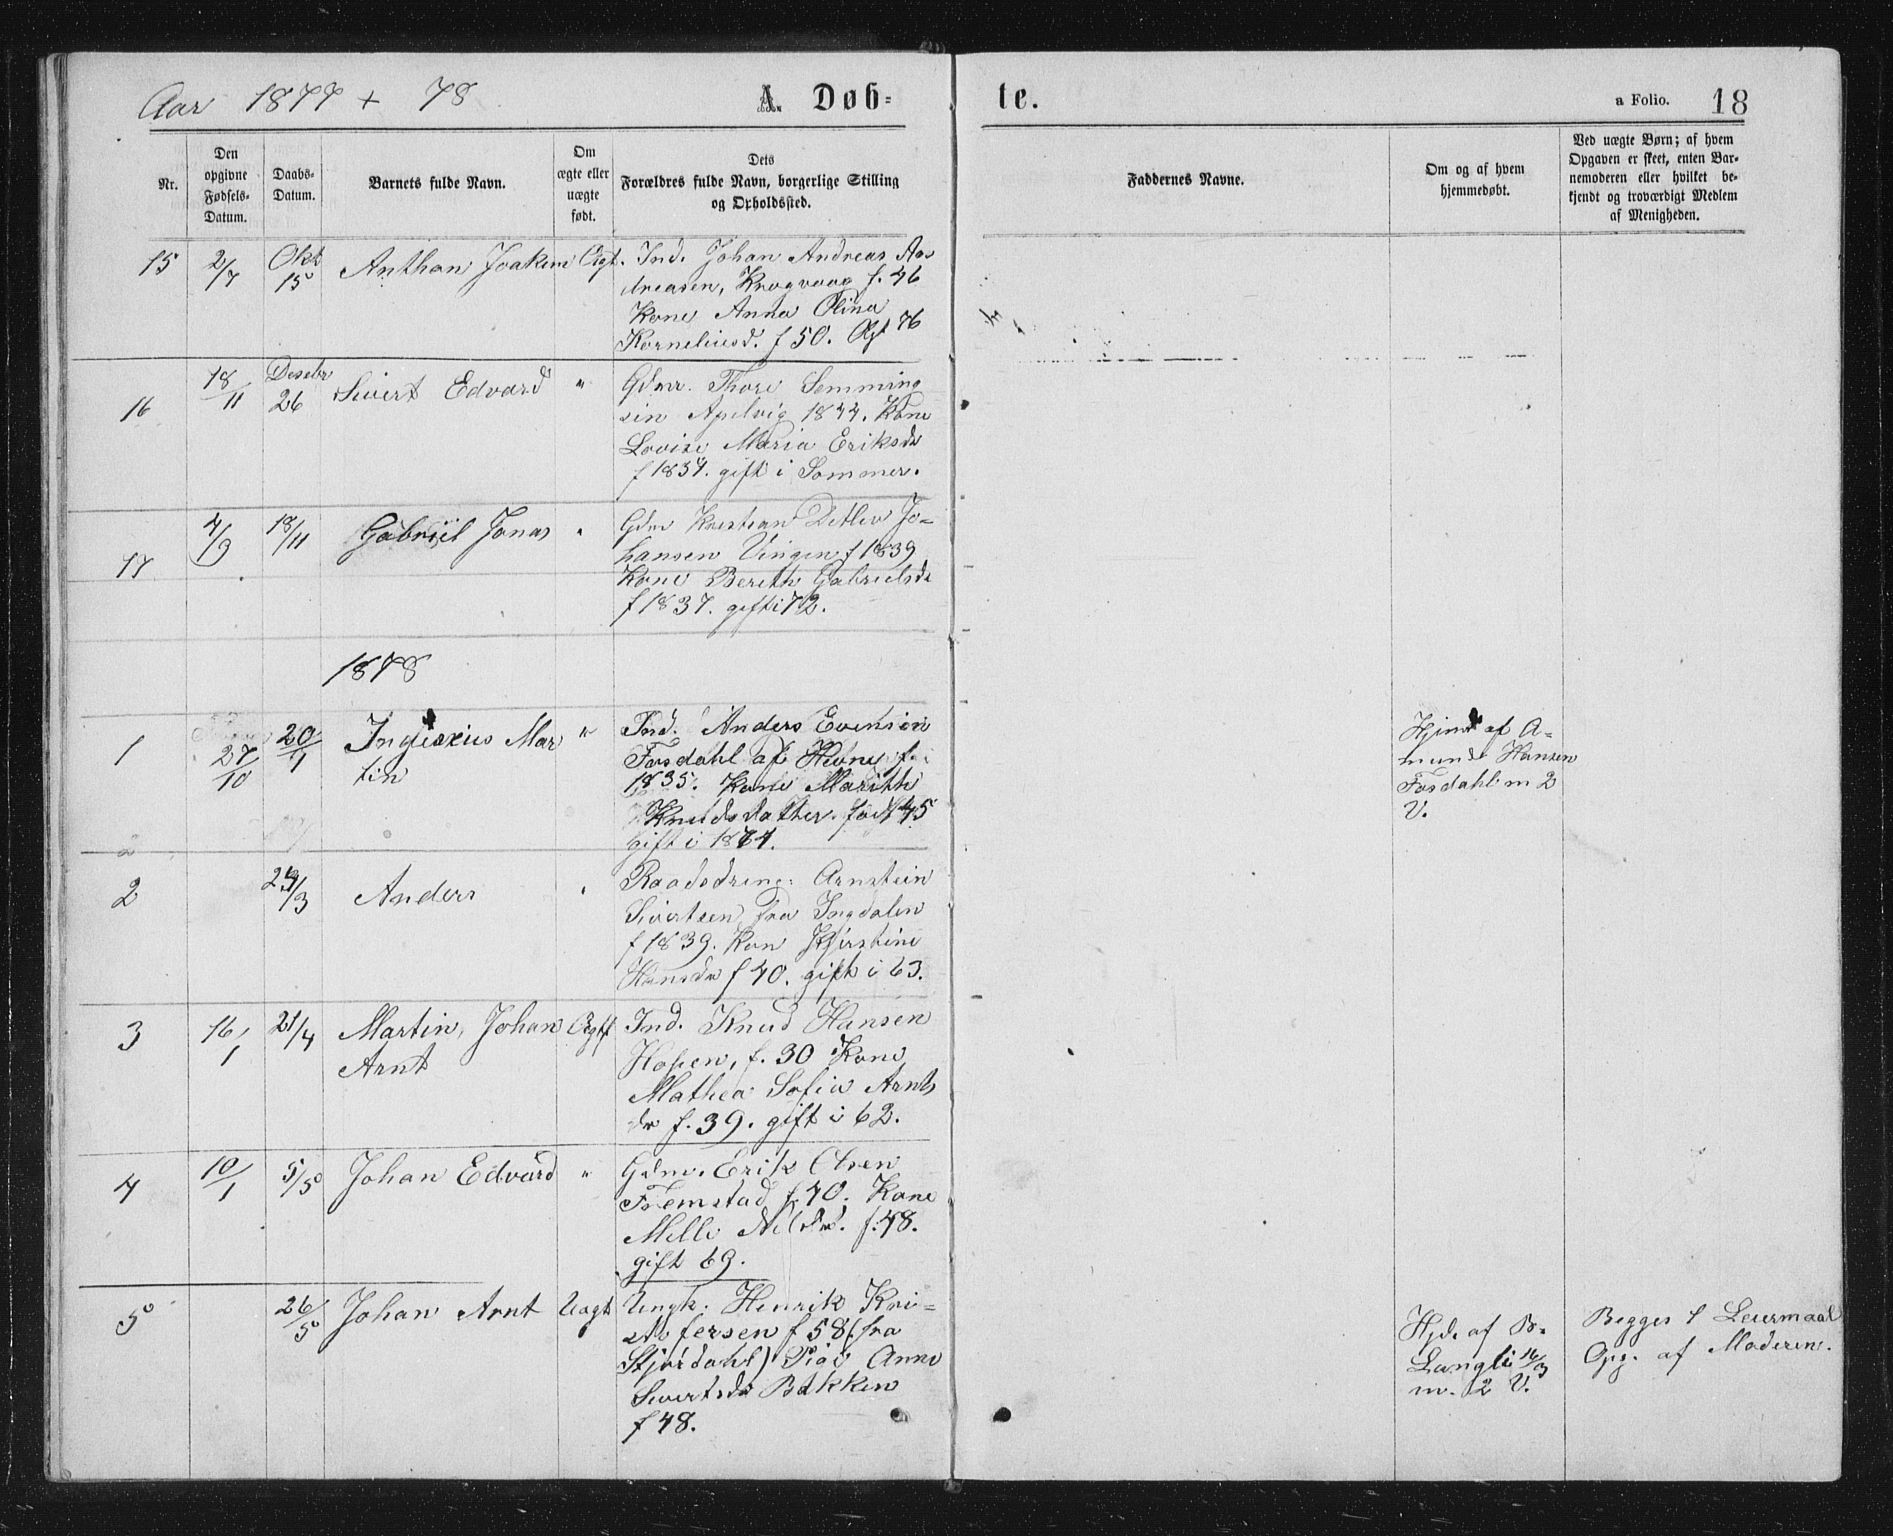 Aar 1877 + 78
A. Døb-
te.
a Folio. 18
Nr.
Den opgivne Fødsels-Datum.
Daabs-Datum.
Barnets fulde Navn.
Om ægte eller uægte født.
Dets Forældres fulde Navn, borgerlige Stilling og Opholdssted.
Faddernes Navne.
Om og af hvem hjemmedøbt.
Ved uægte Børn; af hvem Opgaven er skeet, enten Barnemoderen eller hvilket bekjendt og troværdigt Medlem af Menigheden.
15 2/7 Okt 15 Anthon Joakim Ægt.
Ind. Johan Andreas An
dreasen, Krogvaag f. 46
Kone Anna Olina
Korneliusd. f 50. Ægt 76
16 18/11 Desebr 26 Sivert Edvard "
Gdmr. Thore Lemming
sen Apelvig 1844. Kone
Lovise Maria Eriksdr
f 1837. gift i Sommer.
17 4/9 18/11 Gabriel Jonas "
Gdm Kristian Detlev Jo-
hansen Vingen f 1839
Kone Berith Gabrielsdr
f 1837. gift i 72.
1878
1 27/10 20/1 Ingvar­ius Mar
tin "
Ind. Anders Evensen
Fosdahl af Hevne f.
1835. Kone Marith
Knudsdatter. født 45
gift i 1874.
Hjmd af A-
mund Hansen
Fosdahl m 2
V.
2 24/3 Anders "
Raadsdreng Arnstein
Sivertsen fra Ingdalen
f 1839. Kon Kjirstine
Hansdr f 40. gift i 63.
3 16/1 21/4 Martin, Johan
Arnt Ægt
Ind. Knud Hansen
Hopen, f. 30 Kone
Mathea Sofia Arnts
dr f. 39. gift i 62.
4 10/1 5/5 Johan Edvard "
Gdm. Erik Olsen
Fremstad f. 40. Kone
Melli Nilsdr. f. 48.
gift 69.
5 26/5 Johan Arnt Uægt
Ungk. Henrik Kri-
stofersen f 58 (fra
Stjørdahl) Pige Anne
Sivertsdr Bakken
f 48.
Hjd. af B.
Langli 16/3
m. 2 V.
Begges 1 Leiermaal
Opg. af Moderen.